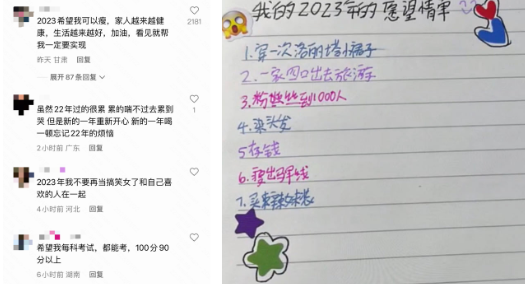 2023希望我可以瘦，家人越来越健
康，生活越来越好，加油，看见就帮
我一定要实现
昨天 甘肃 回复
2181
展开87条回复
虽然22年过的很累 累的端不过去累到
哭 但是新的一年重新开心 新的一年喝
一顿忘记22年的烦恼
2小时前 广东 回复
1
2023年我不要再当搞笑女了和自己喜
欢的人在一起
4小时前 河北 回复
希望我每科考试，都能考，100分90
分以上
6小时前 湖南 回复
我的2023年的愿望清单
1.穿一次洛丽塔小裙子
2.一家四口出去旅游
3.粉丝到1000人
4.染头发
5存钱
6.要出马甲线
7.买